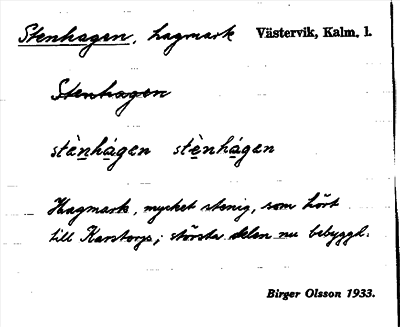 Stenhagen, hagmark Västervik, Kalm. l.
Stenhagen
stènhágen stènhágen
Hagmark, mycket stenig, som hört
till Karstorp; största delen nu bebyggl.
Birger Olsson 1933.